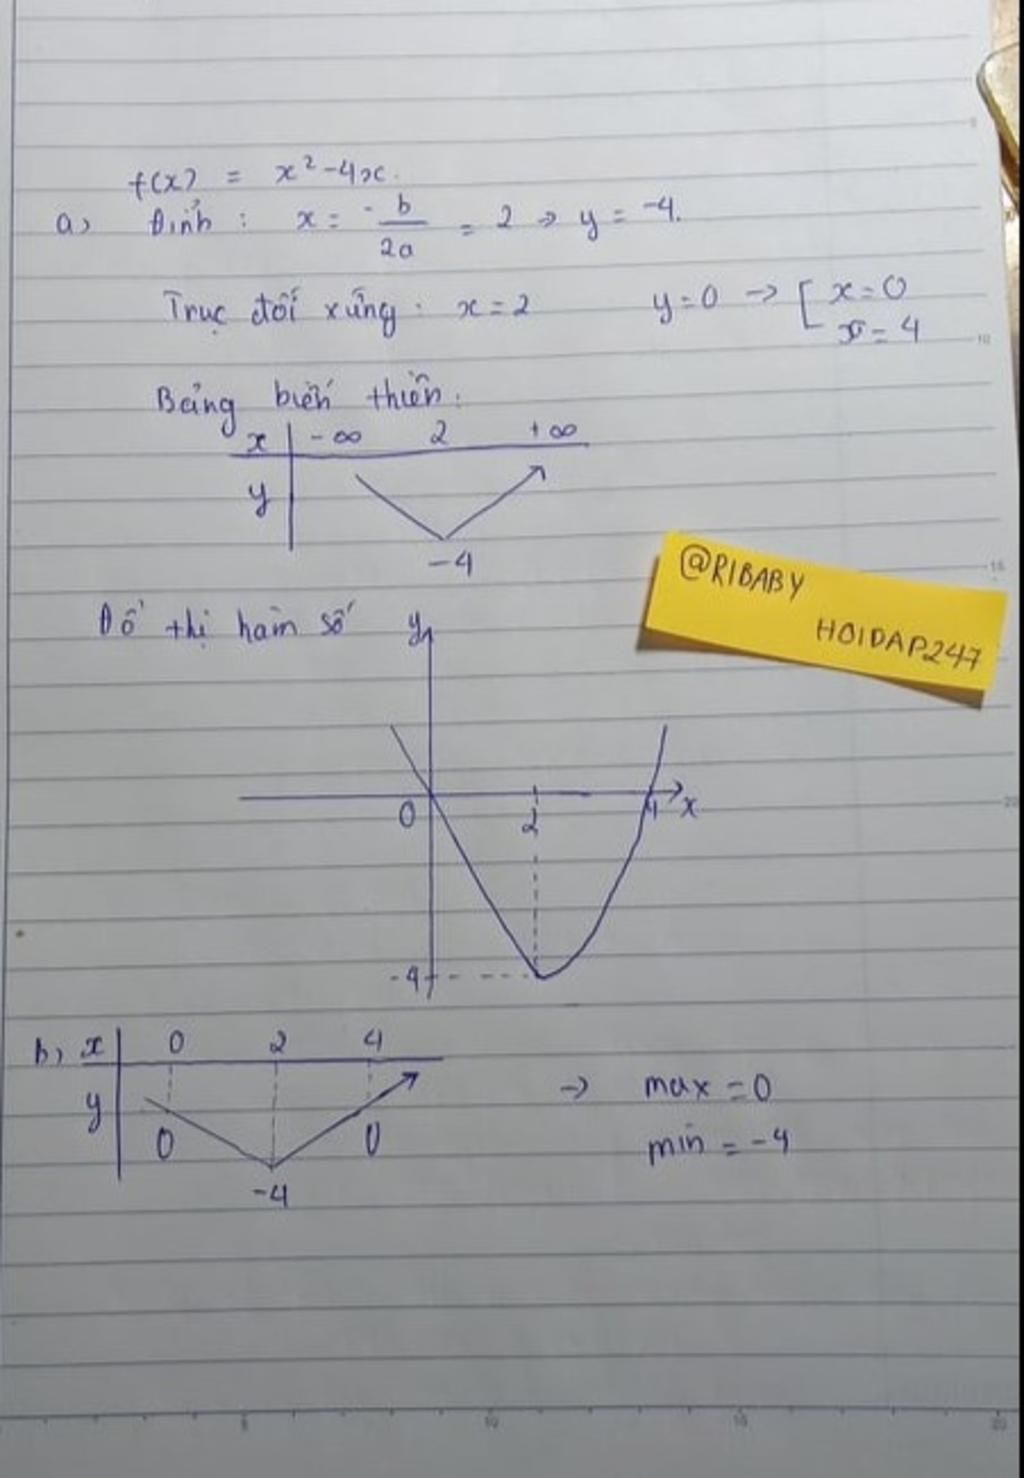 f(x) = x² - 4x.
a) Đỉnh : x = -b/2a = 2 => y = -4.
Trục đối xứng : x = 2 y = 0 -> [ x = 0
x = 4
Bảng biến thiên :
x -∞ 2 +∞
y
-4
@RIBABY
HOIDAP247
Đồ thị hàm số y
0 2 4 x
-4
b) x 0 2 4
y -> max = 0
0 0 min = -4
-4
5 10 15 20